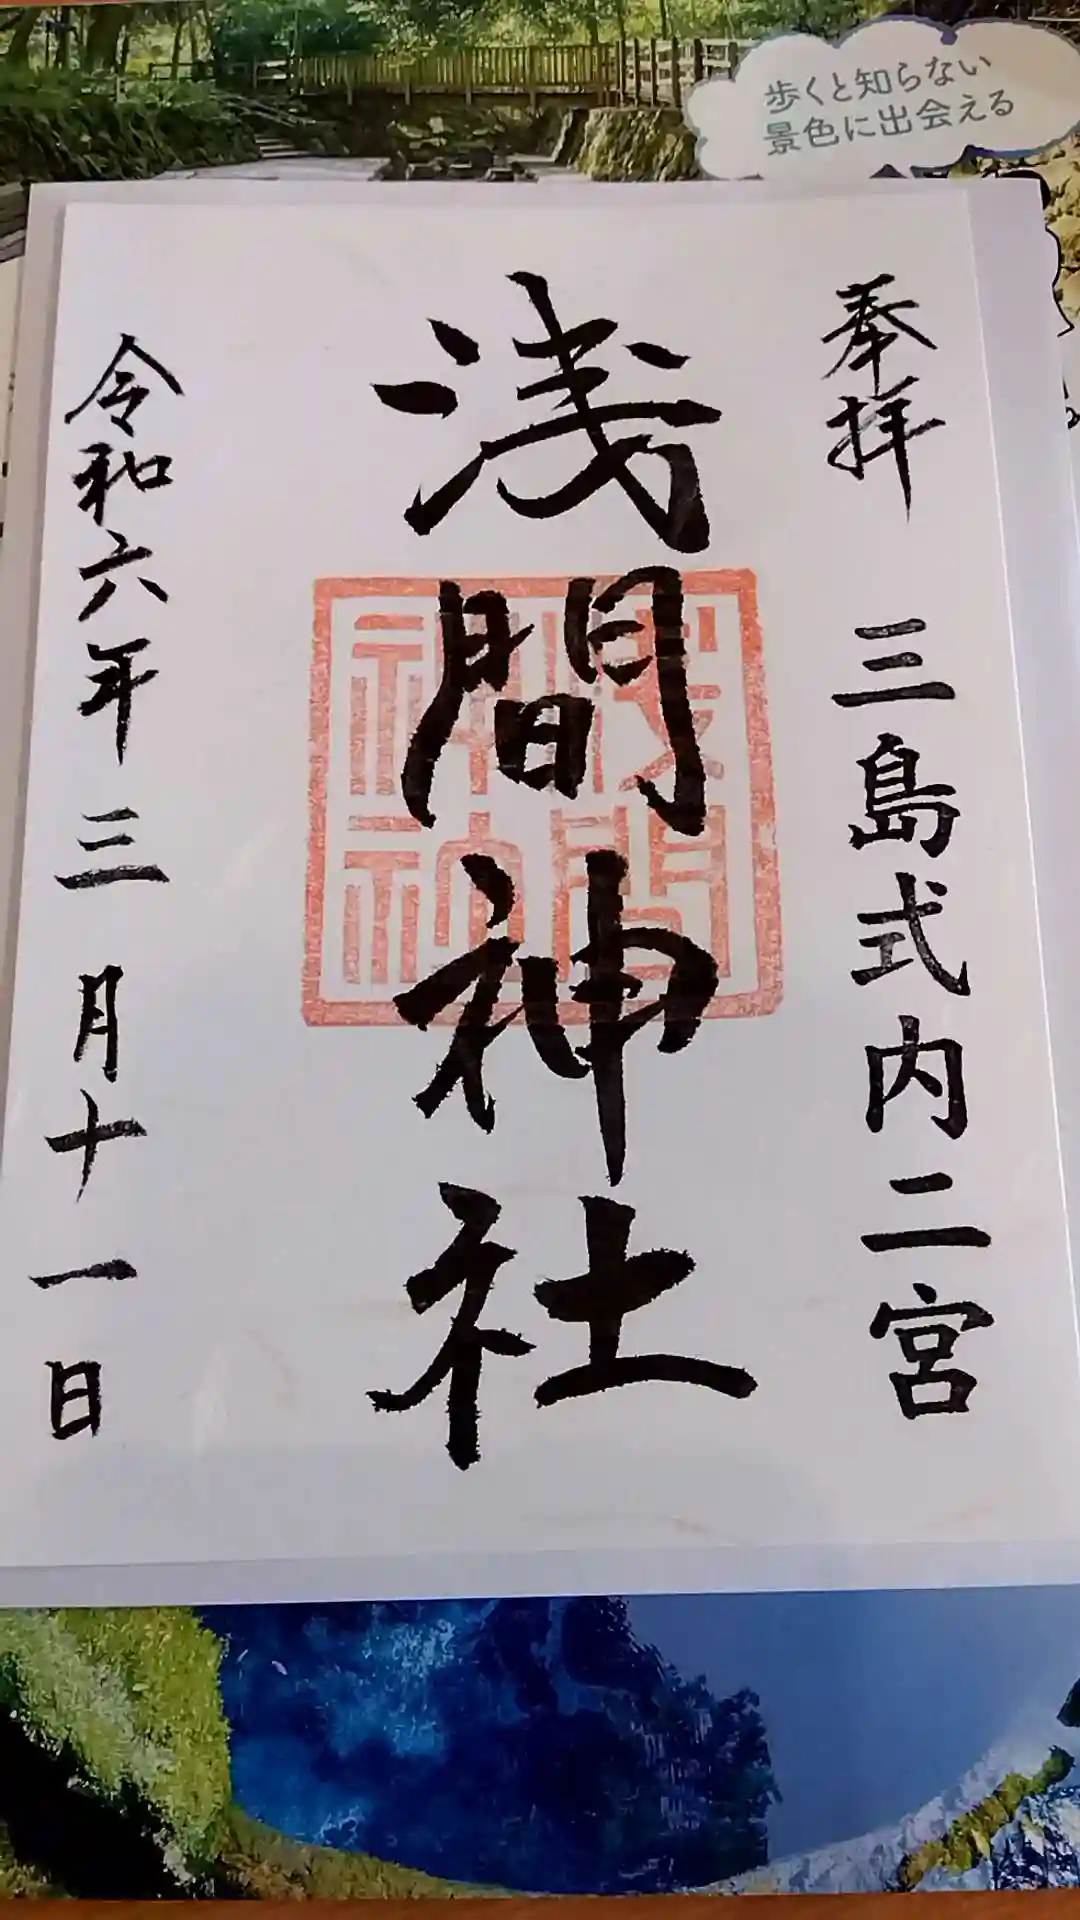 歩くと知らない
景色に出会える
奉拝 三島式内二宮
浅間神社
浅間神社
令和六年三月十一日